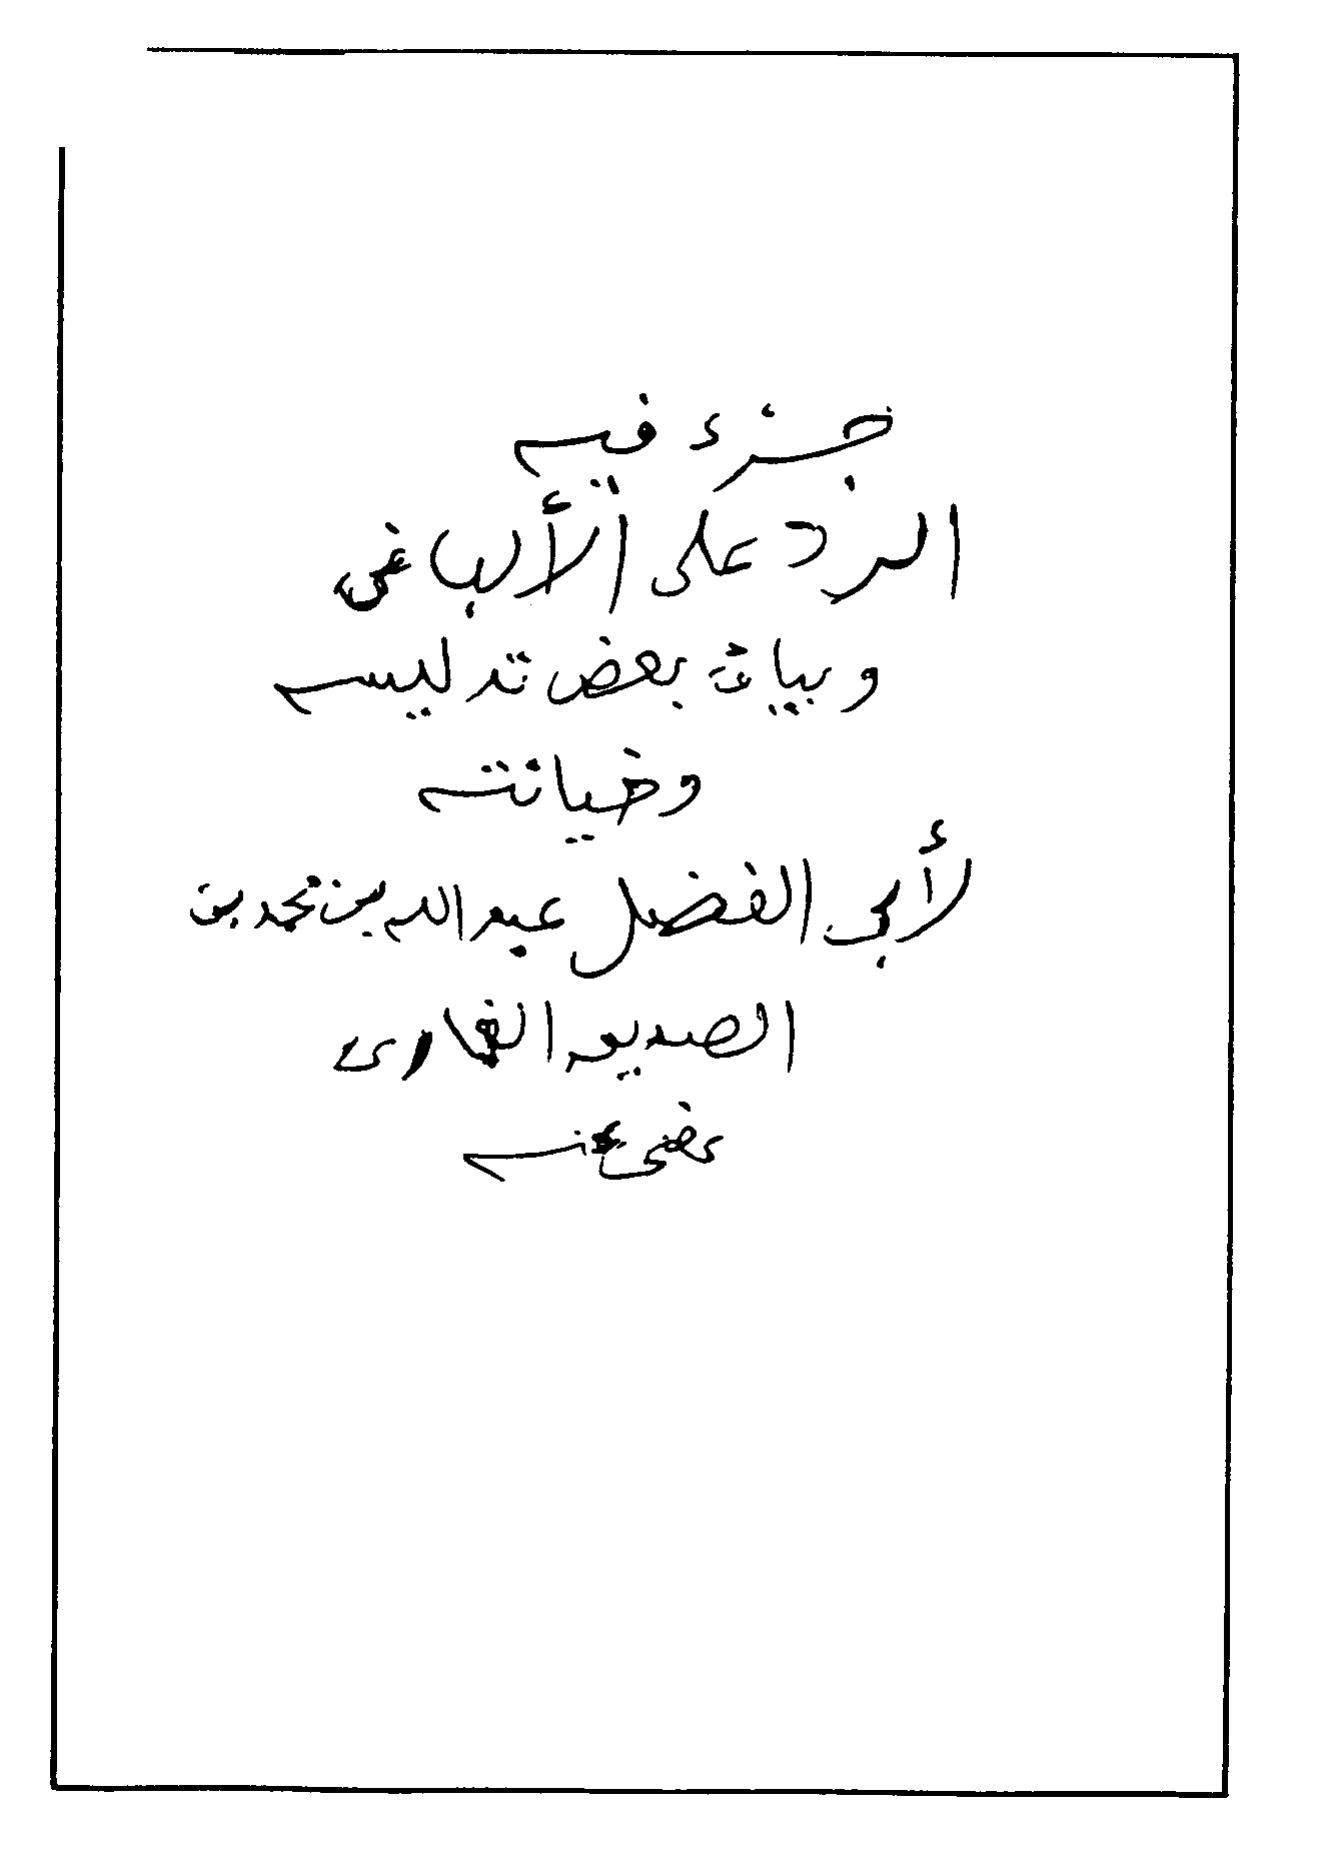 جزء فيه
الرد على الألباني
وبيان بعض تدليسه
وخيانته
لأبي الفضل عبد الله بن محمد بن
الصديق الغماري
عفي عنه